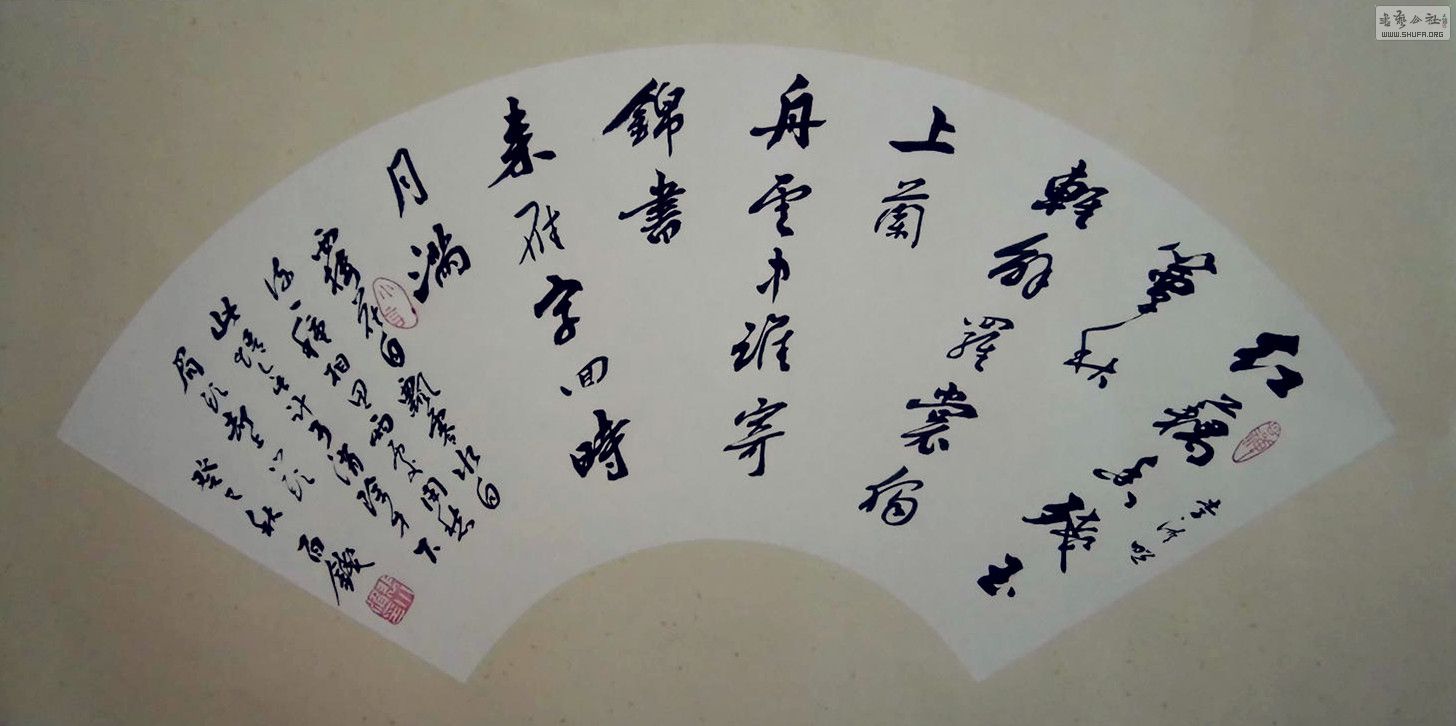 紅藕香殘玉
李清照
簟秋
輕解羅裳獨
上蘭
舟雲中誰寄
錦書
來雁字回時
月滿
西樓花自飄零水自
流一種相思兩處閒愁
此情無計可消除才下
眉頭却上心頭
癸巳秋
書藝公社
WWW.SHUFA.ORG